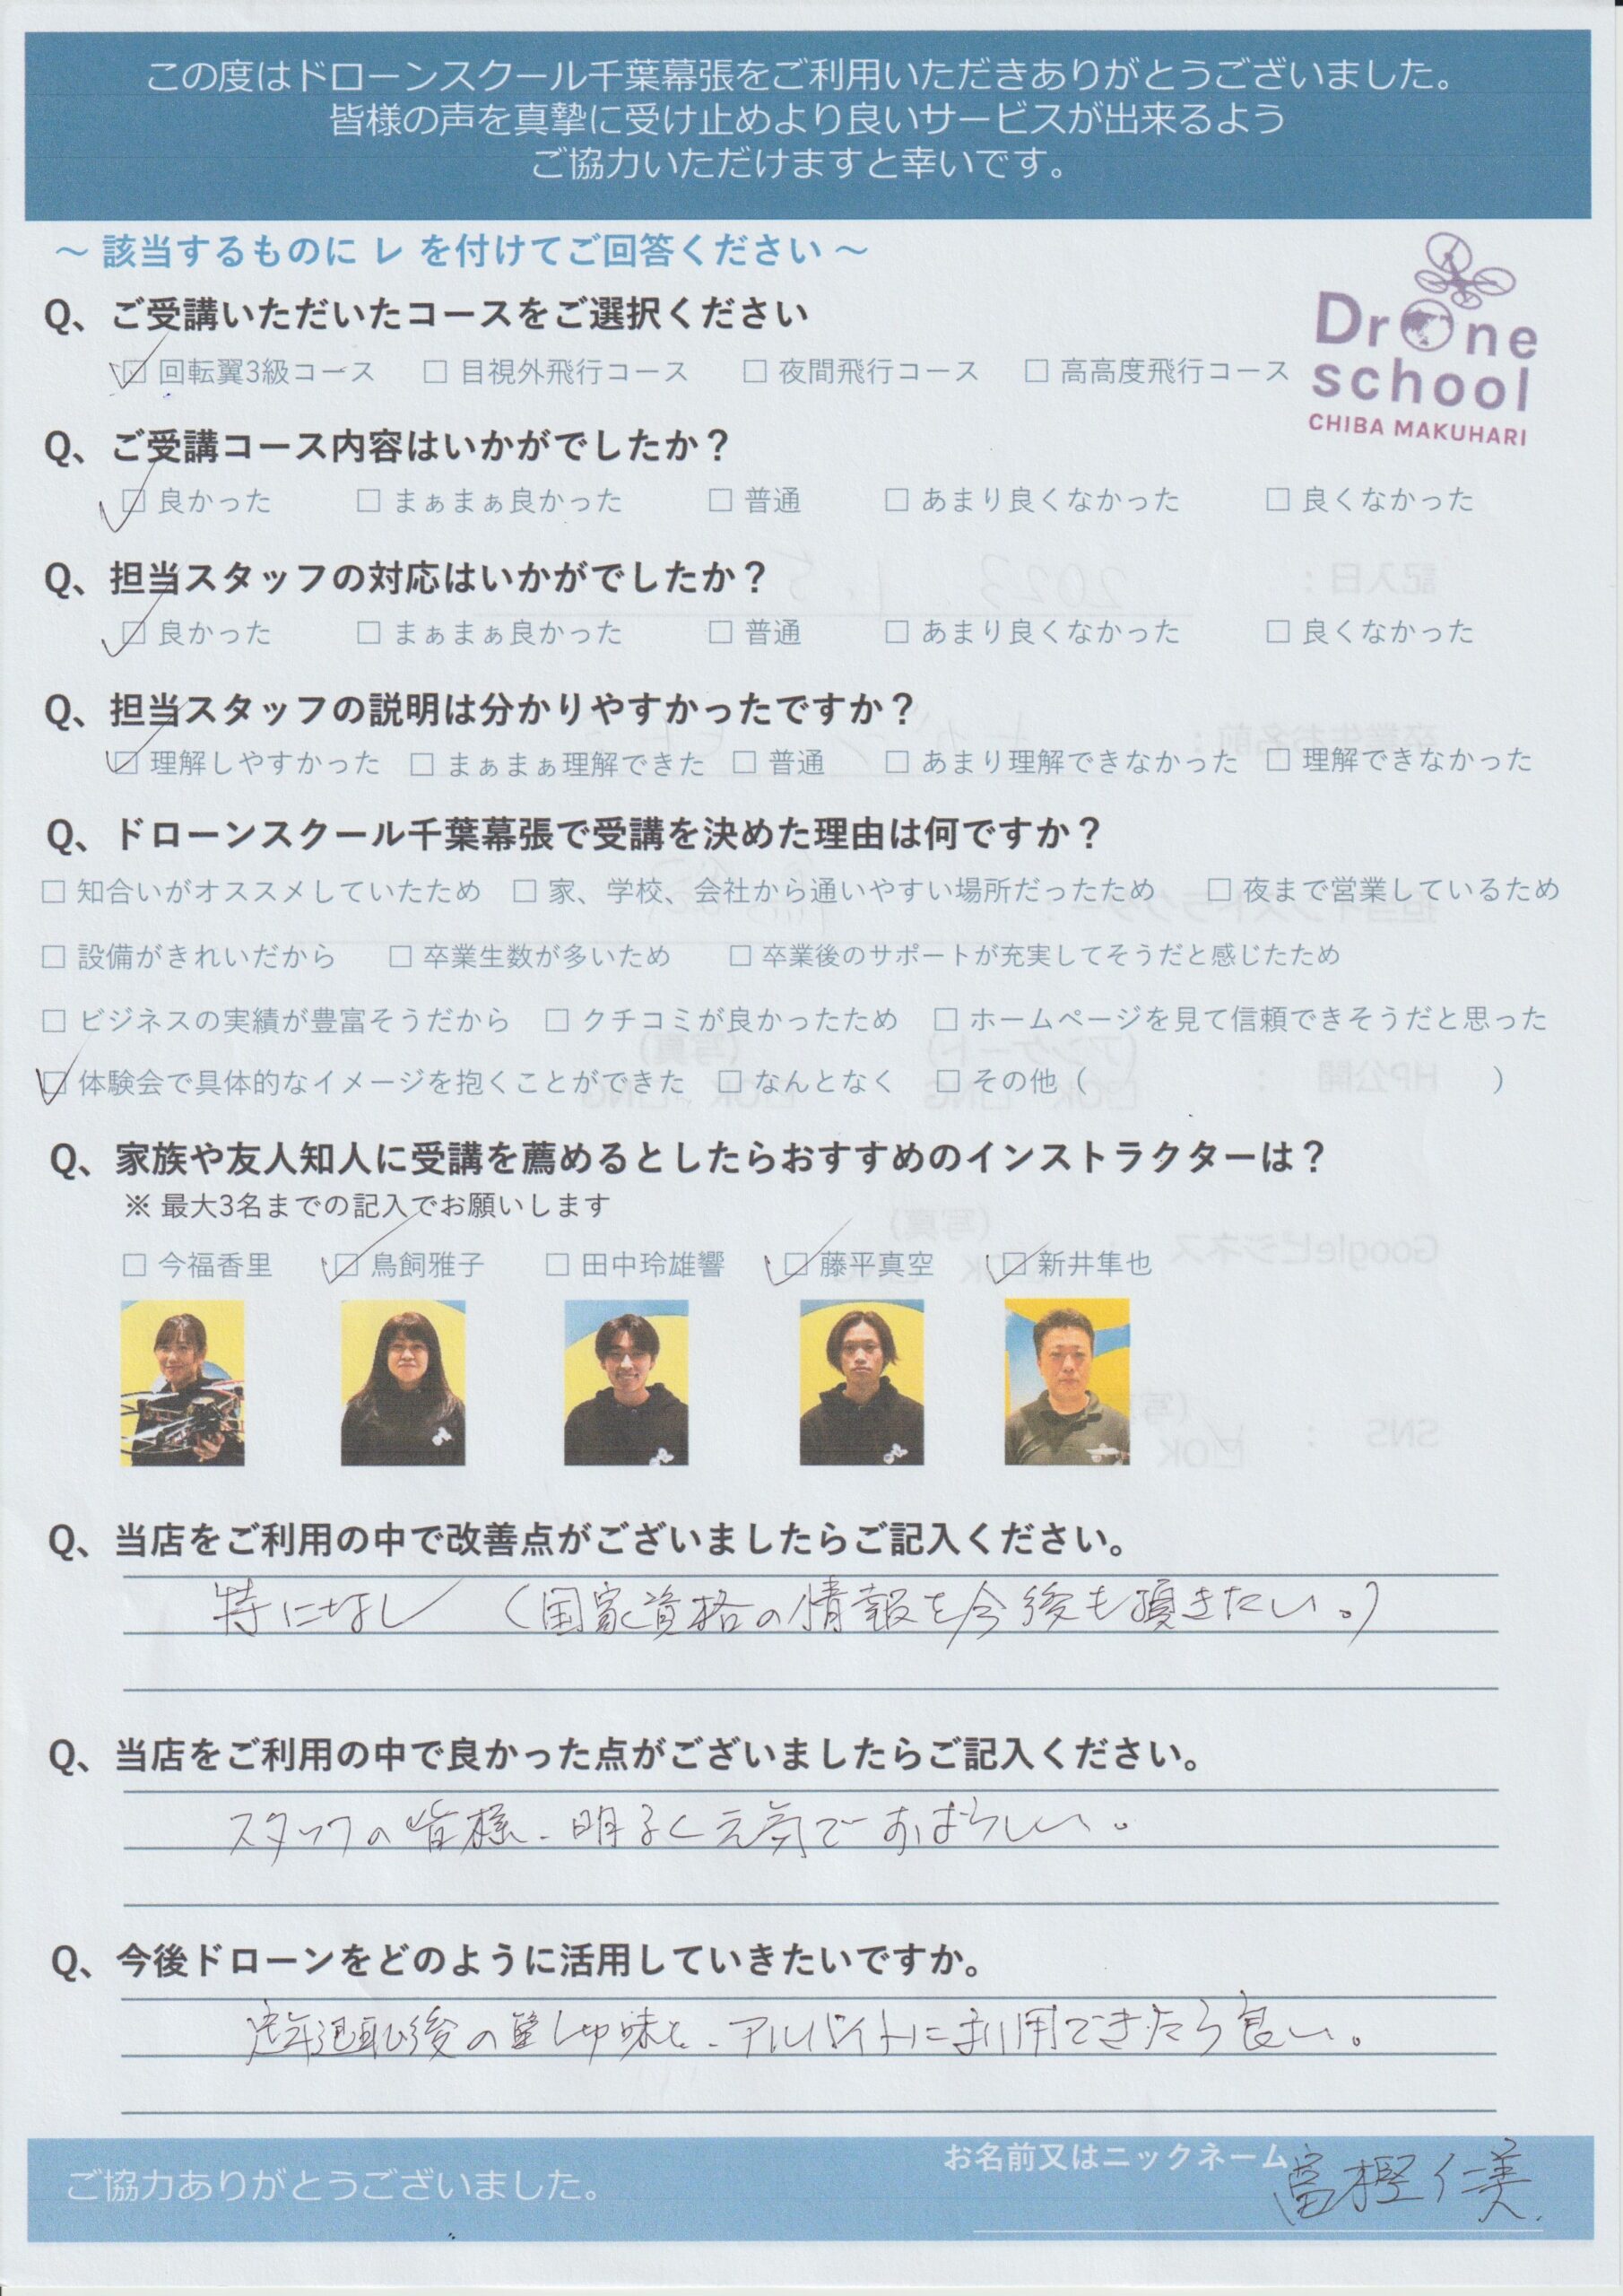 この度はドローンスクール千葉幕張をご利用いただきありがとうございました。
皆様の声を真摯に受け止めより良いサービスが出来るよう
ご協力いただけますと幸いです。
～ 該当するものに レ を付けてご回答ください ～
Drone
school
CHIBA MAKUHARI
Q、ご受講いただいたコースをご選択ください
☑ 回転翼3級コース □ 目視外飛行コース □ 夜間飛行コース □ 高高度飛行コース
Q、ご受講コース内容はいかがでしたか？
☑ 良かった □ まぁまぁ良かった □ 普通 □ あまり良くなかった □ 良くなかった
Q、担当スタッフの対応はいかがでしたか？
☑ 良かった □ まぁまぁ良かった □ 普通 □ あまり良くなかった □ 良くなかった
Q、担当スタッフの説明は分かりやすかったですか？
☑ 理解しやすかった □ まぁまぁ理解できた □ 普通 □ あまり理解できなかった □ 理解できなかった
Q、ドローンスクール千葉幕張で受講を決めた理由は何ですか？
□ 知合いがオススメしていたため □ 家、学校、会社から通いやすい場所だったため □ 夜まで営業しているため
□ 設備がきれいだから □ 卒業生数が多いため □ 卒業後のサポートが充実してそうだと感じたため
□ ビジネスの実績が豊富そうだから □ クチコミが良かったため □ ホームページを見て信頼できそうだと思った
☑ 体験会で具体的なイメージを抱くことができた □ なんとなく □ その他（ ）
Q、家族や友人知人に受講を薦めるとしたらおすすめのインストラクターは？
※ 最大3名までの記入でお願いします
□ 今福香里 ☑ 鳥飼雅子 □ 田中玲雄響 ☑ 藤平真空 ☑ 新井隼也
Q、当店をご利用の中で改善点がございましたらご記入ください。
特になし （国家資格の情報を今後も頂きたい。）
Q、当店をご利用の中で良かった点がございましたらご記入ください。
スタッフの皆様、明るく元気ですばらしい。
Q、今後ドローンをどのように活用していきたいですか。
定年退職後の アルバイトに利用できたら良い。
ご協力ありがとうございました。
お名前又はニックネーム 富樫仁美